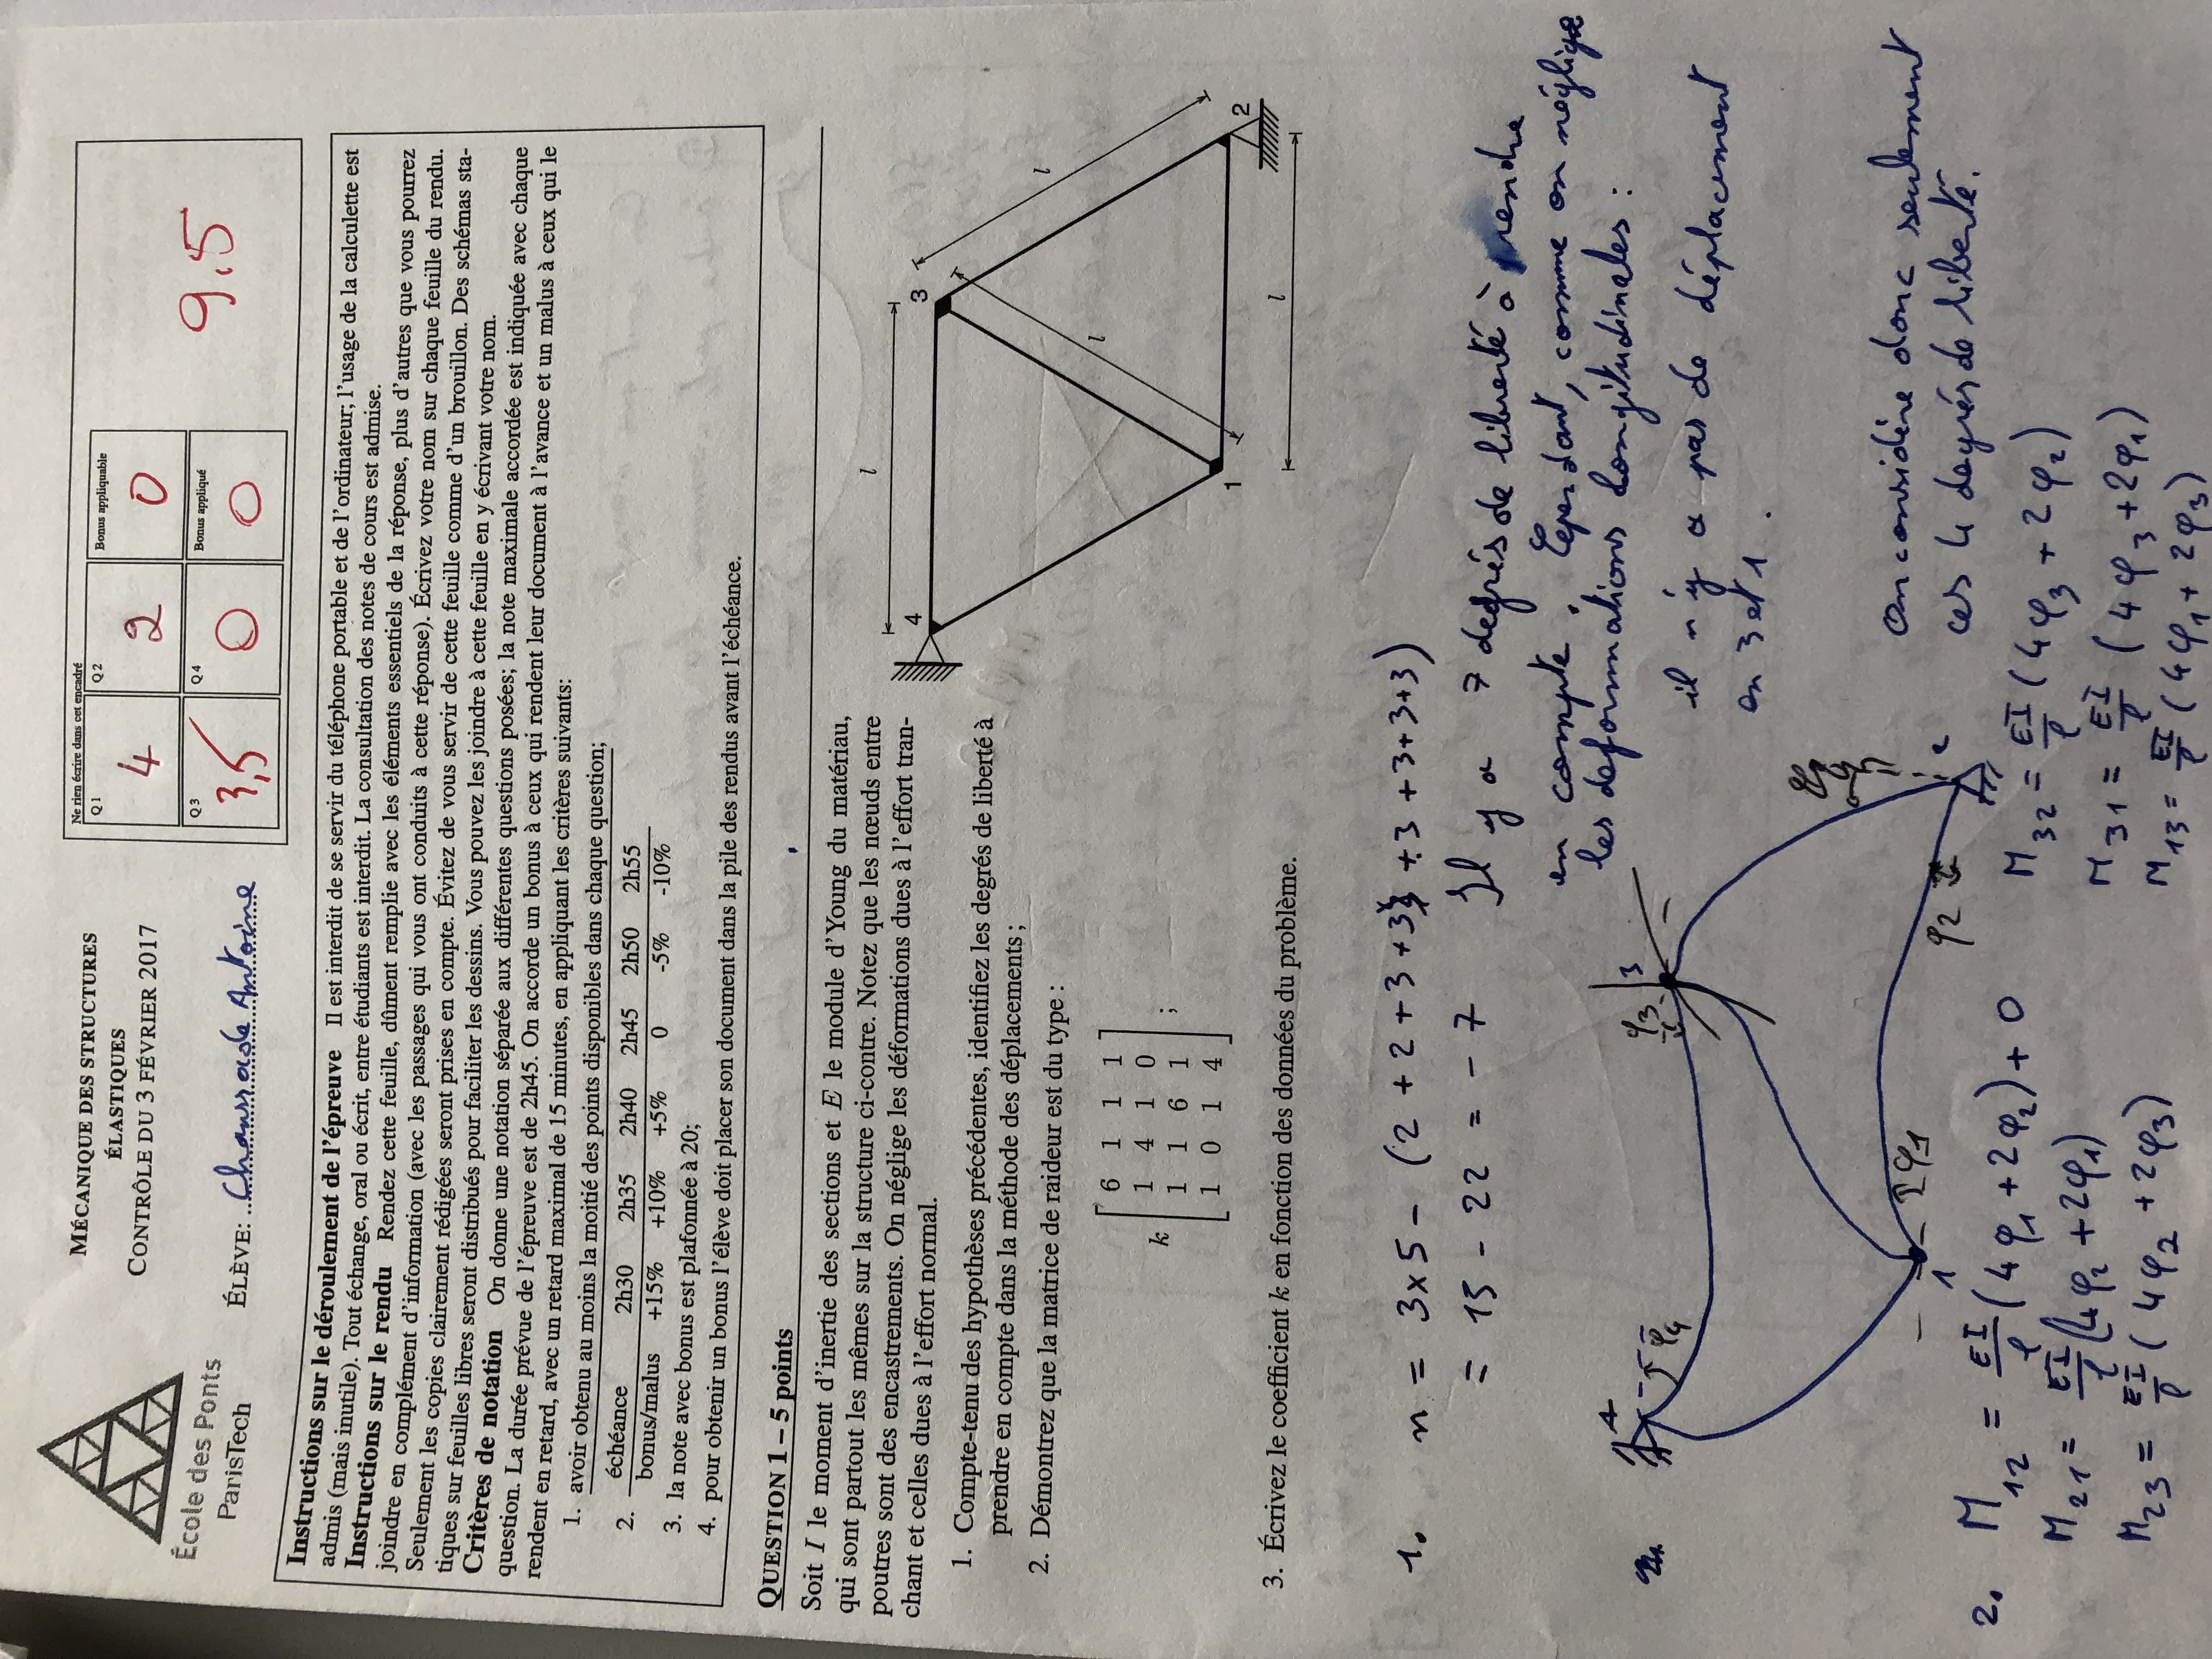 MÉCANIQUE DES STRUCTURES
ÉLASTIQUES
CONTRÔLE DU 3 FÉVRIER 2017
École des Ponts
ParisTech
ÉLÈVE: Chaussade Antoine
Ne rien écrire dans cet encadré
Q 1 4
Q 2 2
Bonus appliquable 0
Q 3 3,5
Q 4 0
Bonus appliqué 0
9.5
Instructions sur le déroulement de l'épreuve Il est interdit de se servir du téléphone portable et de l'ordinateur; l'usage de la calculette est
admis (mais inutile). Tout échange, oral ou écrit, entre étudiants est interdit. La consultation des notes de cours est admise.
Instructions sur le rendu Rendez cette feuille, dûment remplie avec les éléments essentiels de la réponse, plus d'autres que vous pourrez
joindre en complément d'information (avec les passages qui vous ont conduits à cette réponse). Écrivez votre nom sur chaque feuille du rendu.
Seulement les copies clairement rédigées seront prises en compte. Évitez de vous servir de cette feuille comme d'un brouillon. Des schémas sta-
tiques sur feuilles libres seront distribués pour faciliter les dessins. Vous pouvez les joindre à cette feuille en y écrivant votre nom.
Critères de notation On donne une notation séparée aux différentes questions posées; la note maximale accordée est indiquée avec chaque
question. La durée prévue de l'épreuve est de 2h45. On accorde un bonus à ceux qui rendent leur document à l'avance et un malus à ceux qui le
rendent en retard, avec un retard maximal de 15 minutes, en appliquant les critères suivants:
1. avoir obtenu au moins la moitié des points disponibles dans chaque question;
2. échéance 2h30 2h35 2h40 2h45 2h50 2h55
bonus/malus +15% +10% +5% 0 -5% -10%
3. la note avec bonus est plafonnée à 20;
4. pour obtenir un bonus l'élève doit placer son document dans la pile des rendus avant l'échéance.
QUESTION 1 – 5 points
Soit I le moment d'inertie des sections et E le module d'Young du matériau,
qui sont partout les mêmes sur la structure ci-contre. Notez que les nœuds entre
poutres sont des encastrements. On néglige les déformations dues à l'effort tran-
chant et celles dues à l'effort normal.
1. Compte-tenu des hypothèses précédentes, identifiez les degrés de liberté à
prendre en compte dans la méthode des déplacements ;
2. Démontrez que la matrice de raideur est du type :
6 1 1 1
1 4 1 0
k
1 1 6 1 ;
1 0 1 4
3. Écrivez le coefficient k en fonction des données du problème.
l
4 3
l
l
1 2
l
1. n = 3x5 - (2 + 2 + 3 + 3 + 3 + 3+3+3)
= 15 - 22 = - 7 Il y a 7 degrés de liberté à prendre
en compte. Cependant, comme on néglige
les deformations longitudinales :
il n'y a pas de déplacement
en 3 et 1 .
4 φ4
φ3 3
1 φ1
φ2 2
On considère donc seulement
ces 4 degrés de liberté.
2. M12 = EI/l (4φ1 + 2φ2) + 0
M21 = EI/l (4φ2 + 2φ1)
M23 = EI/l ( 4φ2 + 2φ3)
M32 = EI/l (4φ3 + 2φ2)
M31 = EI/l (4φ3 + 2φ1)
M13 = EI/l (4φ1 + 2φ3)